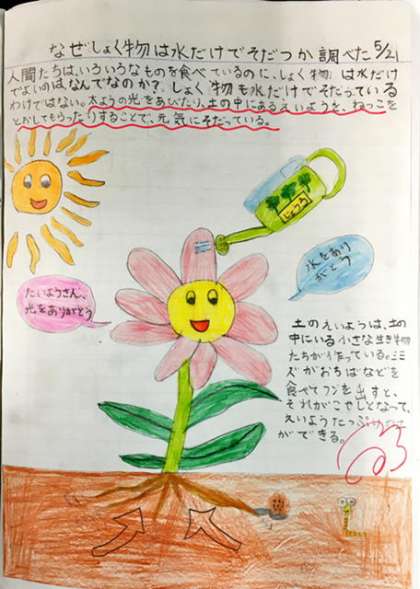 なぜしょく物は水だけでそだつか調べた 5/21
人間たちは、いろいろなものを食べているのに、しょく物は水だけ
でよいのはなんでなのか？しょく物も水だけでそだっている
わけではない。太ようの光をあびたり、土の中にあるえいようを、ねっこを
とかしてもらったりすることで、元気にそだっている。
じょうろ
水をあり
がとう
たいようさん、
光をありがとう
土のえいようは、土の
中にいる小さな生き物
たちが作っている。ミミ
ズがおちばなどを
食べてフンを出すと、
それがこやしとなって、
えいようたっぷり
ができる。